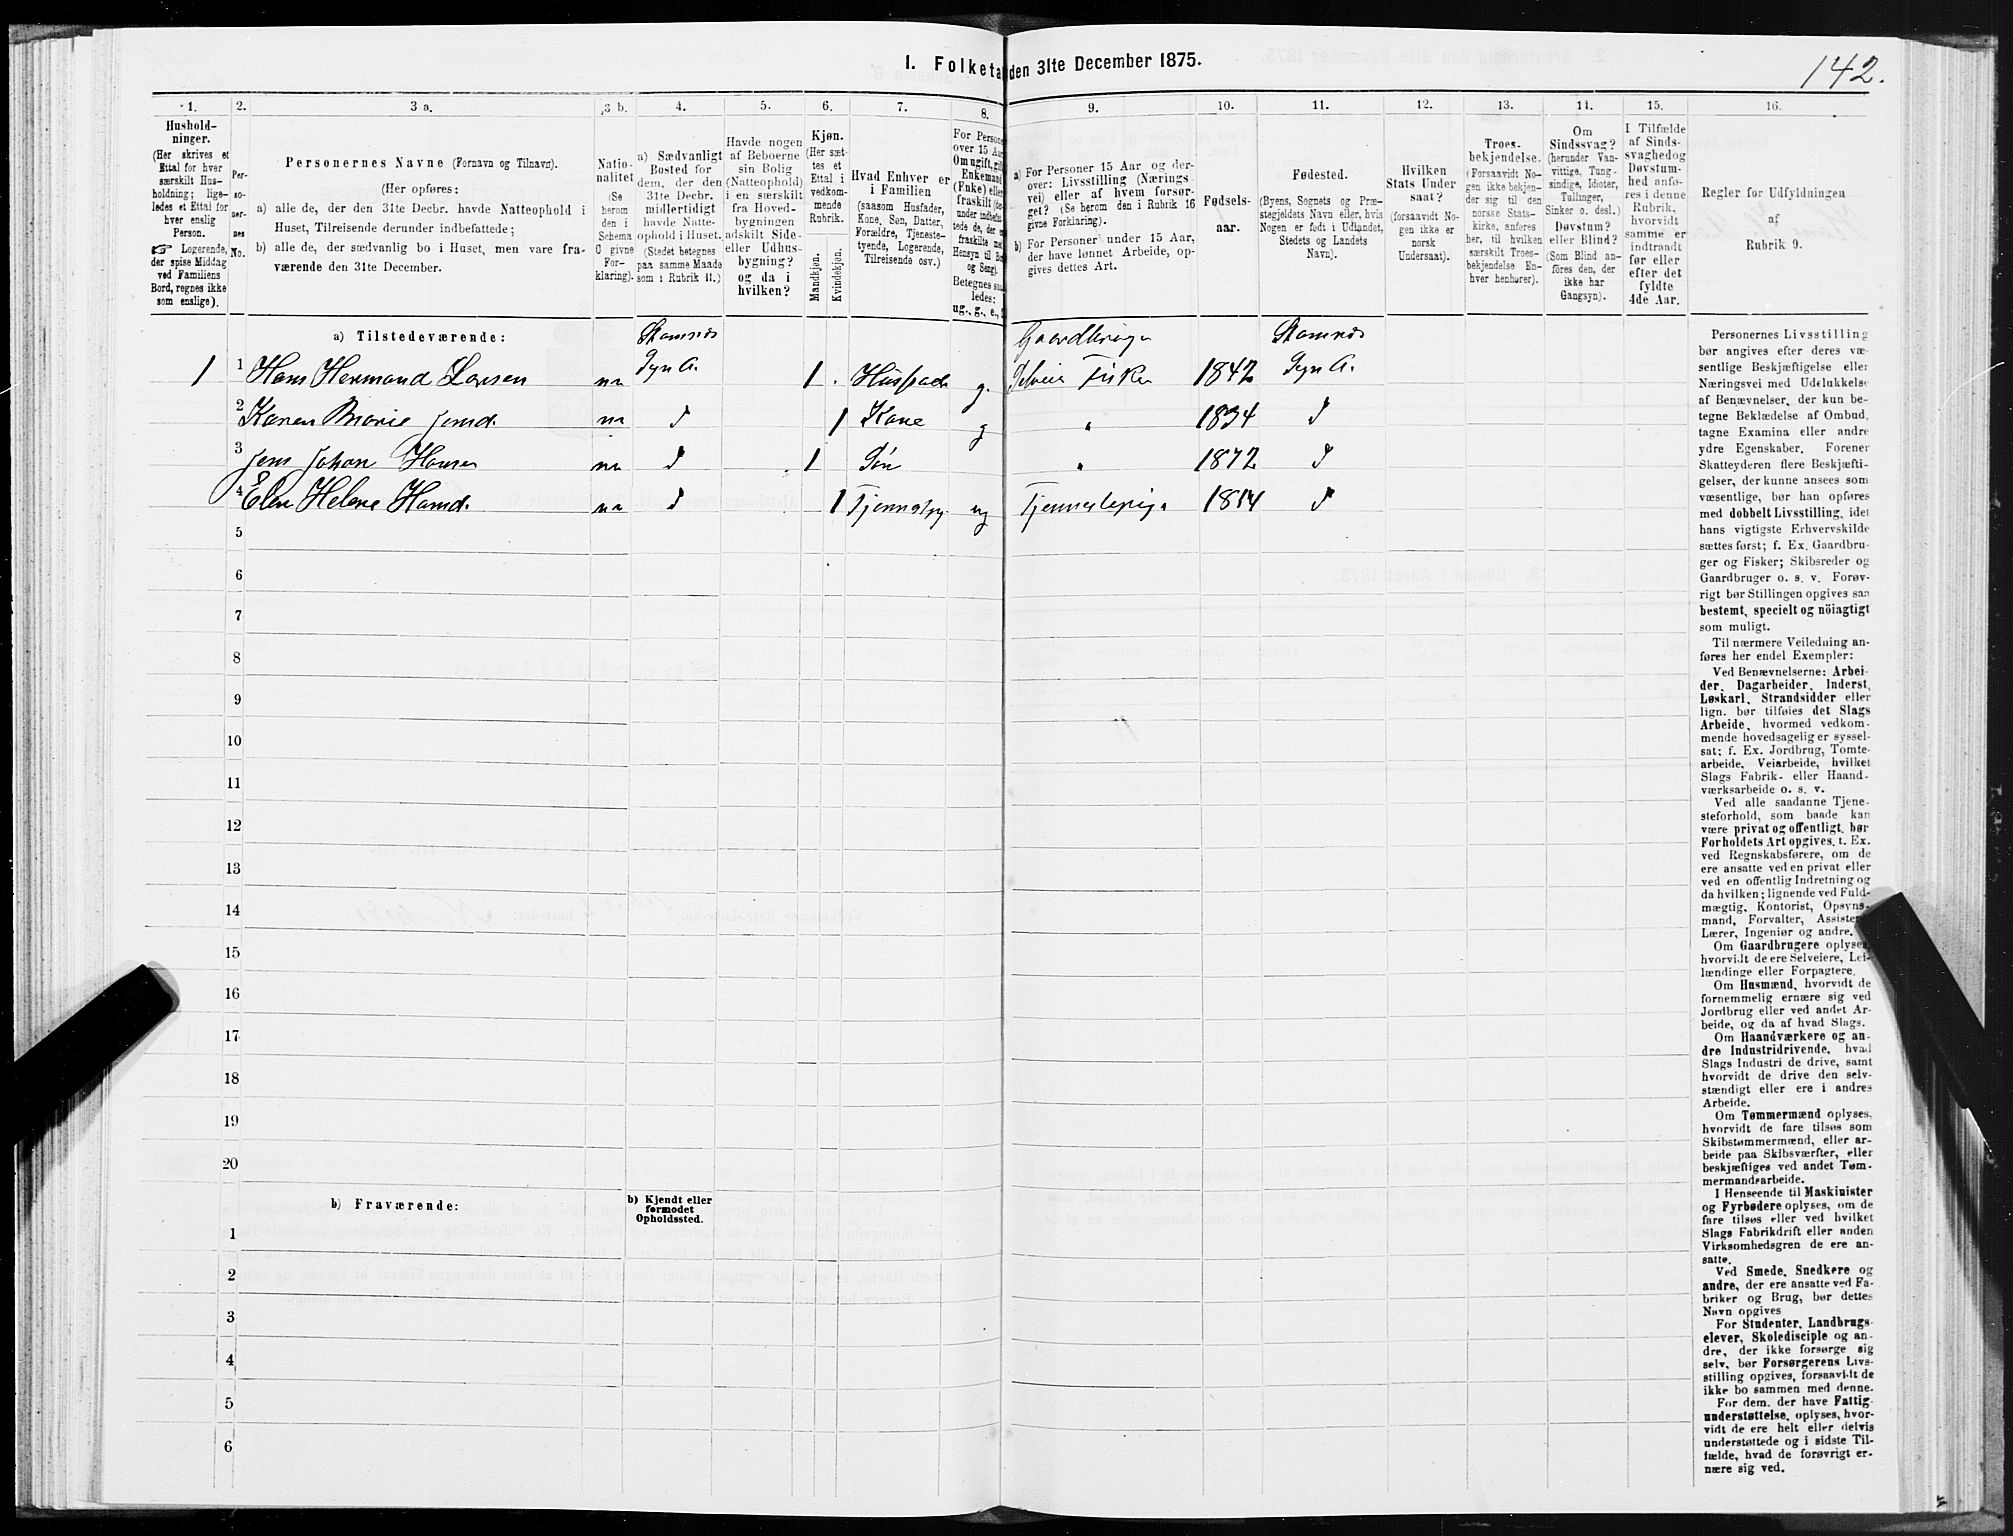 I. Folketæ den 31te December 1875.
142.
1. 2. 3 a. 3 b. 4. 5. 6. 7. 8. 9. 10. 11. 12. 13. 11. 15. 16.
Hushold-
ninger.
(Her skrives et
Ettal for hver
særskilt Hus-
holdning; lige-
ledes et Ettal for
hver enslig
Person.
☞ Logerende,
der spise Middag
ved Familiens
Bord, regnes ikke
som enslige).
Per-
so-
ner-
nes
No.
Personernes Navne (Fornavn og Tilnavn).
(Her opføres:
a) alle de, der den 31te Decbr. havde Natteophold i
Huset, Tilreisende derunder indbefattede;
b) alle de, der sædvanlig bo i Huset, men vare fra-
værende den 31te December.
Natio-
nalitet
(Se
herom
den i
Schema
0 givne
For-
klaring).
a) Sædvanligt
Bosted for
dem, der den
31te Decbr.
midlertidigt
havde Natte-
ophold i Huset.
(Stedet betegnes
paa samme Maade
som i Rubrik 11.)
Havde nogen
af Beboerne
sin Bolig
(Natteophold)
i en særskilt
fra Hoved-
bygningen
adskilt Side-
eller Udhus-
bygning?
og da i
hvilken?
Kjøn.
(Her sæt-
tes et
Ettal i
vedkom-
mende
Rubrik.
Mandkjøn.
Kvindekjøn.
Hvad Enhver er
i Familien
(saasom Husfader,
Kone, Søn, Datter,
Forældre, Tjeneste-
tyende, Logerende,
Tilreisende osv.)
For Persone
over 15 Aar
Om ugift, gift
Enkemand
(Enke) elle
fraskilt
under indbefat
tede de, der
fraskilte me
Hensyn til Bo
og Seng).
Betegnes saa
ledes:
ug., g., e.,
a) For Personer 15 Aar og der-
over: Livsstilling (Nærings-
vei) eller af hvem forsør-
get? (Se herom den i Rubrik 16
givne Forklaring).
b) For Personer under 15 Aar,
der have lønnet Arbeide, op-
gives dettes Art.
Fødsels-
aar.
Fødested.
(Byens, Sognets og Præ-
stegjeldets Navn eller, hvis
Nogen er født i Udlandet,
Stedets og Landets
Navn).
Hvilken
Stats Under
saat?
(forsaavidt No-
gen ikke er
norsk
Undersaat).
Troes-
bekjendelse.
(Forsaavidt No-
gen ikke bekjen-
der sig til den
norske Stats-
kirke, anføres
her, til hvilken
særskilt Troes-
bekjendelse En-
hver henhører).
Om
Sindssvag?
(herunder Van-
vittige, Tung-
sindige, Idioter,
Tullinger,
Sinker o. desl.)
Døvstum?
eller Blind?
(Som Blind an-
føres den, der
ikke har
Gangsyn).
I Tilfælde
af Sinds-
svaghedog
Døvstum-
hed anfø-
res i denne
Rubrik,
hvorvidt
samme er
indtraadt
før eller
efter det
fyldte
4de Aar.
Regler for Udfyldningen
af
Rubrik 9.
a) Tilstedeværende: Stamnæs Gaardbruger Stamnæs
1 1 Hans Hermand Larsen nn 1 Husfad g. Selveier Fisker 1842
2 Karen Marie Jensd. nn d 1 Kone g " 1834 d
3 Jens Johan Hansen nn d 1 Søn " 1872 d
4 Elen Helene Hansd. nn d 1 ug Tjenestepige d
5
6
7
8
9
10
11
12
13
14
15
16
17
18
19
20
b) Fraværende:
b) Kjendt eller
formodet
Opholdssted.
1
2
3
4
5
6
Personernes Livsstilling
bør angives efter deres væ-
sentlige Beskjæftigelse eller
Næringsvei med Udelukkelse
af Benævnelser, der kun be-
tegne Beklædelse af Ombud,
tagne Examina eller andre
ydre Egenskaber. Forener
Skatteyderen flere Beskjæfti-
gelser, der kunne ansees som
væsentlige, bør han opføres
med dobbelt Livsstilling, idet
hans vigtigste Erhvervskilde
sættes først; f. Ex. Gaardbru-
ger og Fisker; Skibsreder og
Gaardbruger o. s. v. Forøv-
rigt bør Stillingen opgives saa
bestemt, specielt og nöiagtigt
som muligt.
Til nærmere Veiledning an-
føres her endel Exempler:
Ved Benævnelserne: Arbei-
der, Dagarbeider, Inderst,
Løskarl, Strandsidder eller
lign. bør tilføies det Slags
Arbeide, hvormed vedkom-
mende hovedsagelig er syssel-
sat; f. Ex. Jordbrug, Tomte-
arbeide, Veiarbeide, hvilket
Slags Fabrik- eller Haand-
værksarbeide o. s. v.
Ved alle saadanne Tjene-
steforhold, som baade kan
være privat og offentligt, bør
Forholdets Art opgives, t. Ex.
ved Regnskabsførere, om de
ere ansatte ved en privat eller
ved en offentlig Indretning og
da hvilken; lignende ved Fuld-
mægtig, Kontorist, Opsyns-
mand, Forvalter, Assistent,
Lærer, Ingeniør og andre.
Om Gaardbrugere oplyses,
hvorvidt de ere Selveiere, Lei-
lændinge eller Forpagtere.
Om Husmænd, hvorvidt de
fornemmelig ernære sig ved
Jordbrug eller ved andet Ar-
beide, og da af hvad Slags.
Om Haandværkere og an-
dre Industridrivende, hvad
Slags Industri de drive, samt
hvorvidt de drive den selv-
stændigt eller ere i andres
Arbeide.
Om Tømmermænd oplyses,
hvorvidt de fare tilsøs som
Skibstømmermænd, eller ar-
beide paa Skibsværfter, eller
beskjæftiges ved andet Tøm-
mermandsarbeide.
I Henseende til Maskinister
og Fyrbødere oplyses, om de
fare tilsøs eller ved hvilket
Slags Fabrikdrift eller anden
Virksomhedsgren de ere an-
satte.
Ved Smede, Snedkere og
andre, der ere ansatte ved Fa-
briker og Brug, bør dettes
Navn opgives
For Studenter, Landbrugs-
elever, Skoledisciple og an-
dre, der ikke forsørge sig
selv, bør Forsørgerens Livs-
stilling opgives, forsaavidt de
ikke bo sammen med denne.
For dem, der have Fattig-
understøttelse, oplyses, hvor-
vidt de ere helt eller delvis
understøttede og i sidste Til-
fælde, hvad de forøvrigt er-
nære sig ved.